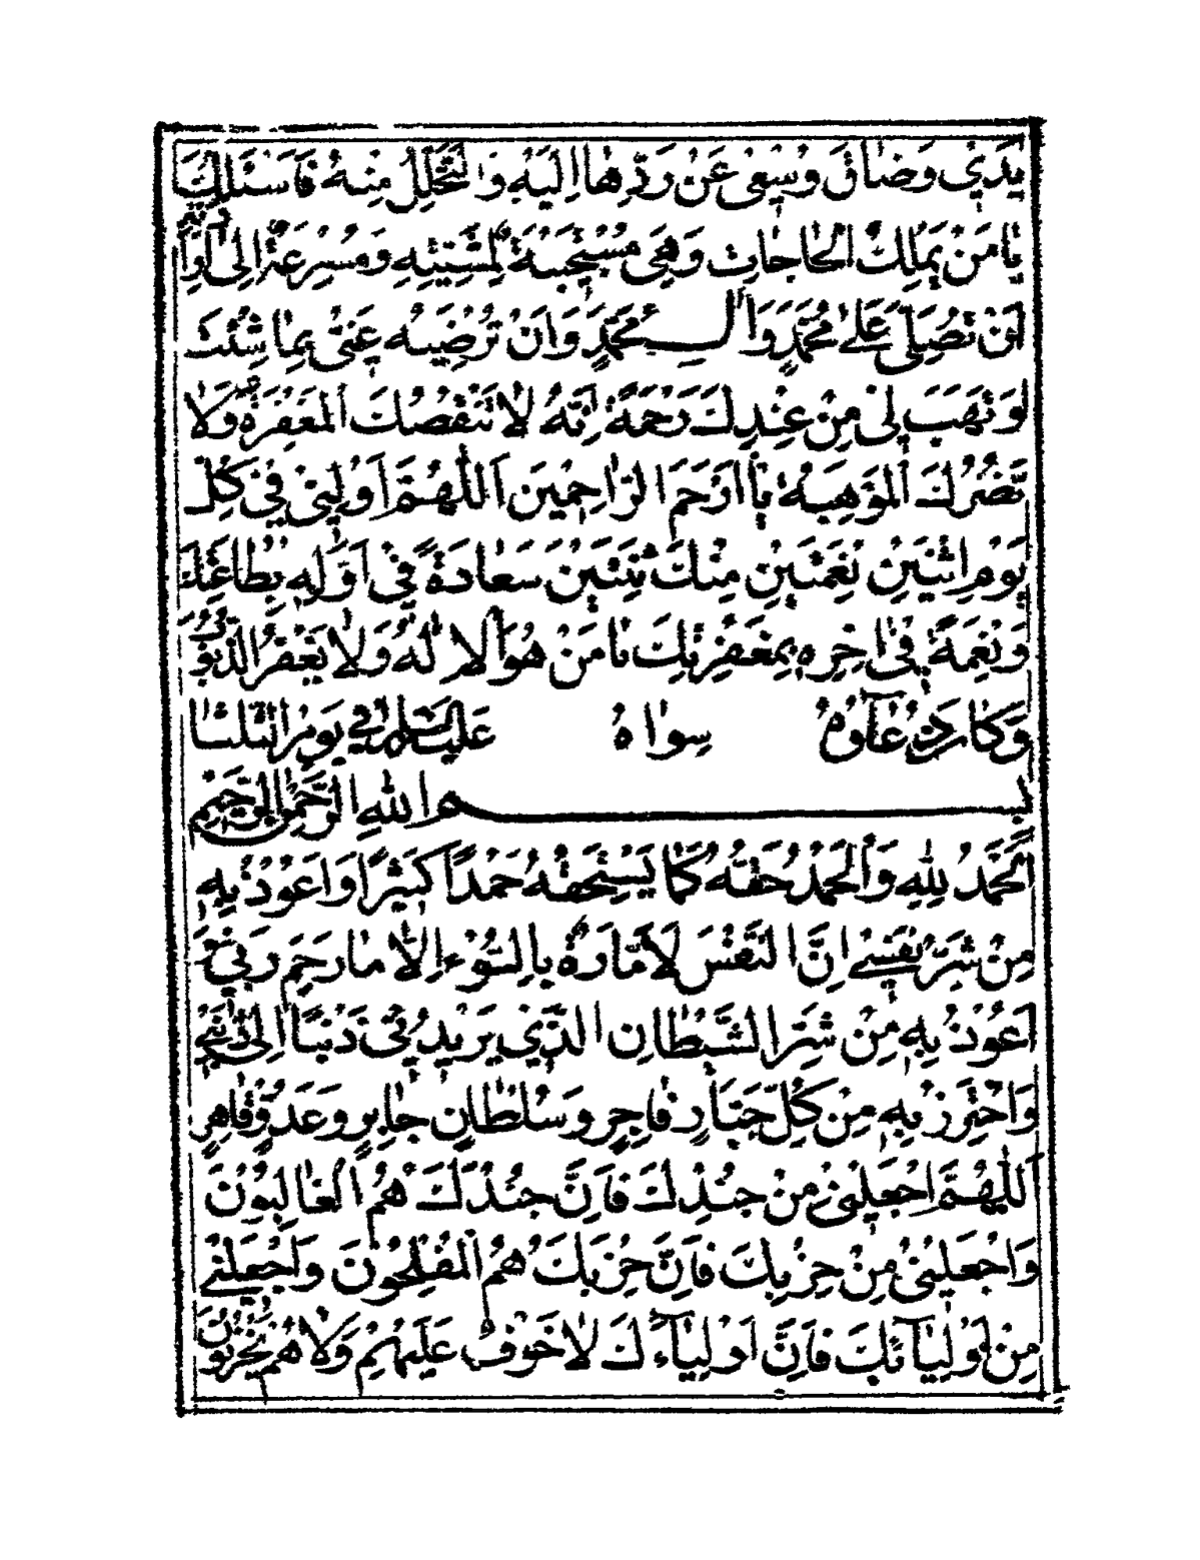 يَدَيَّ وَضَاقَ وُسْعِى عَنْ رَدِّهَا اِلَيْهِ وَالتَّحَلُّلِ مِنْهُ فَاَسْئَلُكَ
يَا مَنْ يَمْلِكُ الْحَاجَاتِ وَهِىَ مُسْتَجِيبَةٌ لِمَشِيَّتِهِ وَمُسْرِعَةٌ اِلىٰ اِرَادَتِهِ
اَنْ تُصَلِّىَ عَلىٰ مُحَمَّدٍ وَآلِ مُحَمَّدٍ وَاَنْ تُرْضِيَهُ عَنّى بِمَا شِئْتَ
وَتَهَبَ لِى مِنْ عِنْدِكَ رَحْمَةً اِنَّهُ لَا تَنْقُصُكَ الْمَغْفِرَةُ وَلَا
تَضُرُّكَ الْمَوْهِبَةُ يَا اَرْحَمَ الرَّاحِمِينَ اَللّٰهُمَّ اَوْلِنِى فِى كُلِّ
يَوْمِ اِثْنَيْنِ نِعْمَتَيْنِ مِنْكَ ثِنْتَيْنِ سَعَادَةً فِى اَوَّلِهِ بِطَاعَتِكَ
وَنِعْمَةً فِى اٰخِرِهِ بِمَغْفِرَتِكَ يَا مَنْ هُوَ الْاِلٰهُ وَلَا يَغْفِرُ الذُّنُوبَ
سِوَاهُ
عَلَيْهِ السَّلَامُ فِى يَوْمِ الثَّلٰثَا
بِسْمِ اللهِ الرَّحْمٰنِ الرَّحِيمِ
اَلْحَمْدُ لِلّٰهِ وَالْحَمْدُ حَقُّهُ كَمَا يَسْتَحِقُّهُ حَمْدًا كَثِيرًا وَاَعُوذُ بِهِ
مِنْ شَرِّ نَفْسِى اِنَّ النَّفْسَ لَاَمَّارَةٌ بِالسُّوْءِ اِلَّا مَا رَحِمَ رَبِّى وَ
اَعُوذُ بِهِ مِنْ شَرِّ الشَّيْطَانِ الَّذِى يَزِيدُنِى ذَنْبًا اِلىٰ ذَنْبِى
وَاَحْتَرِزُ بِهِ مِنْ كُلِّ جَبَّارٍ فَاجِرٍ وَسُلْطَانٍ جَايِرٍ وَعَدُوٍّ قَاهِرٍ
اَللّٰهُمَّ اجْعَلْنِى مِنْ جُنْدِكَ فَاِنَّ جُنْدَكَ هُمُ الْغَالِبُونَ
وَاجْعَلْنِى مِنْ حِزْبِكَ فَاِنَّ حِزْبَكَ هُمُ الْمُفْلِحُونَ وَاجْعَلْنِى
مِنْ اَوْلِيَآئِكَ فَاِنَّ اَوْلِيَآءَكَ لَا خَوْفٌ عَلَيْهِمْ وَلَا هُمْ يَحْزَنُونَ